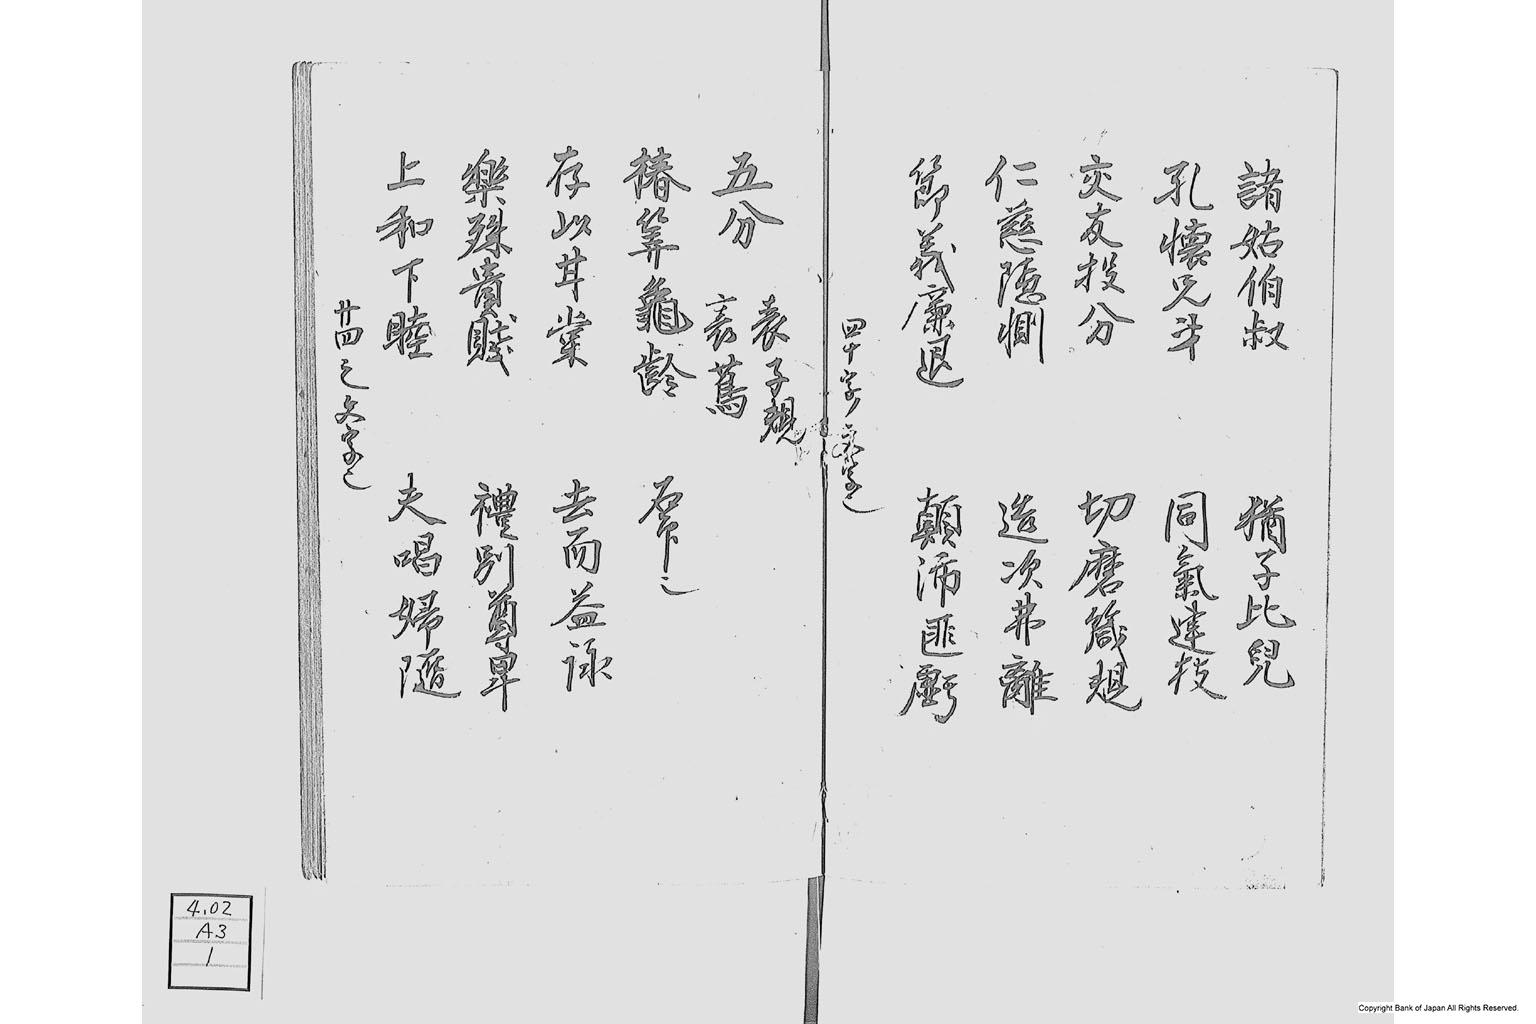 諸姑伯叔　猶子比兒
孔懷兄弟　同氣連枝
交友投分　切磨箴規
仁慈隱惻　造次弗離
節義廉退　顛沛匪虧
四十字ノ文字也
五分
表子規
裏蔦
椿算龜齡
存以甘棠　去而益詠
樂殊貴賤　禮別尊卑
上和下睦　夫唱婦隨
廿四之文字也
4.02
A3
1
Copyright Bank of Japan All Rights Reserved.